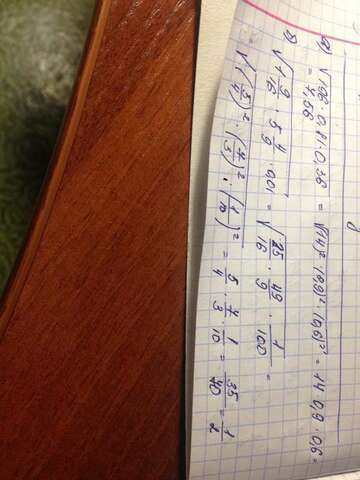 д) √196·0,81·0,36 = √(14)²·(0,9)²·(0,6)² = 14·0,9·0,6 =
= 7,56
√1 9/16 · 5 4/9 · 0,01 = √25/16 · 49/9 · 1/100 =
√(5/4)² · (7/3)² · (1/10)² = 5/4 · 7/3 · 1/10 = 35/40 = 1/2